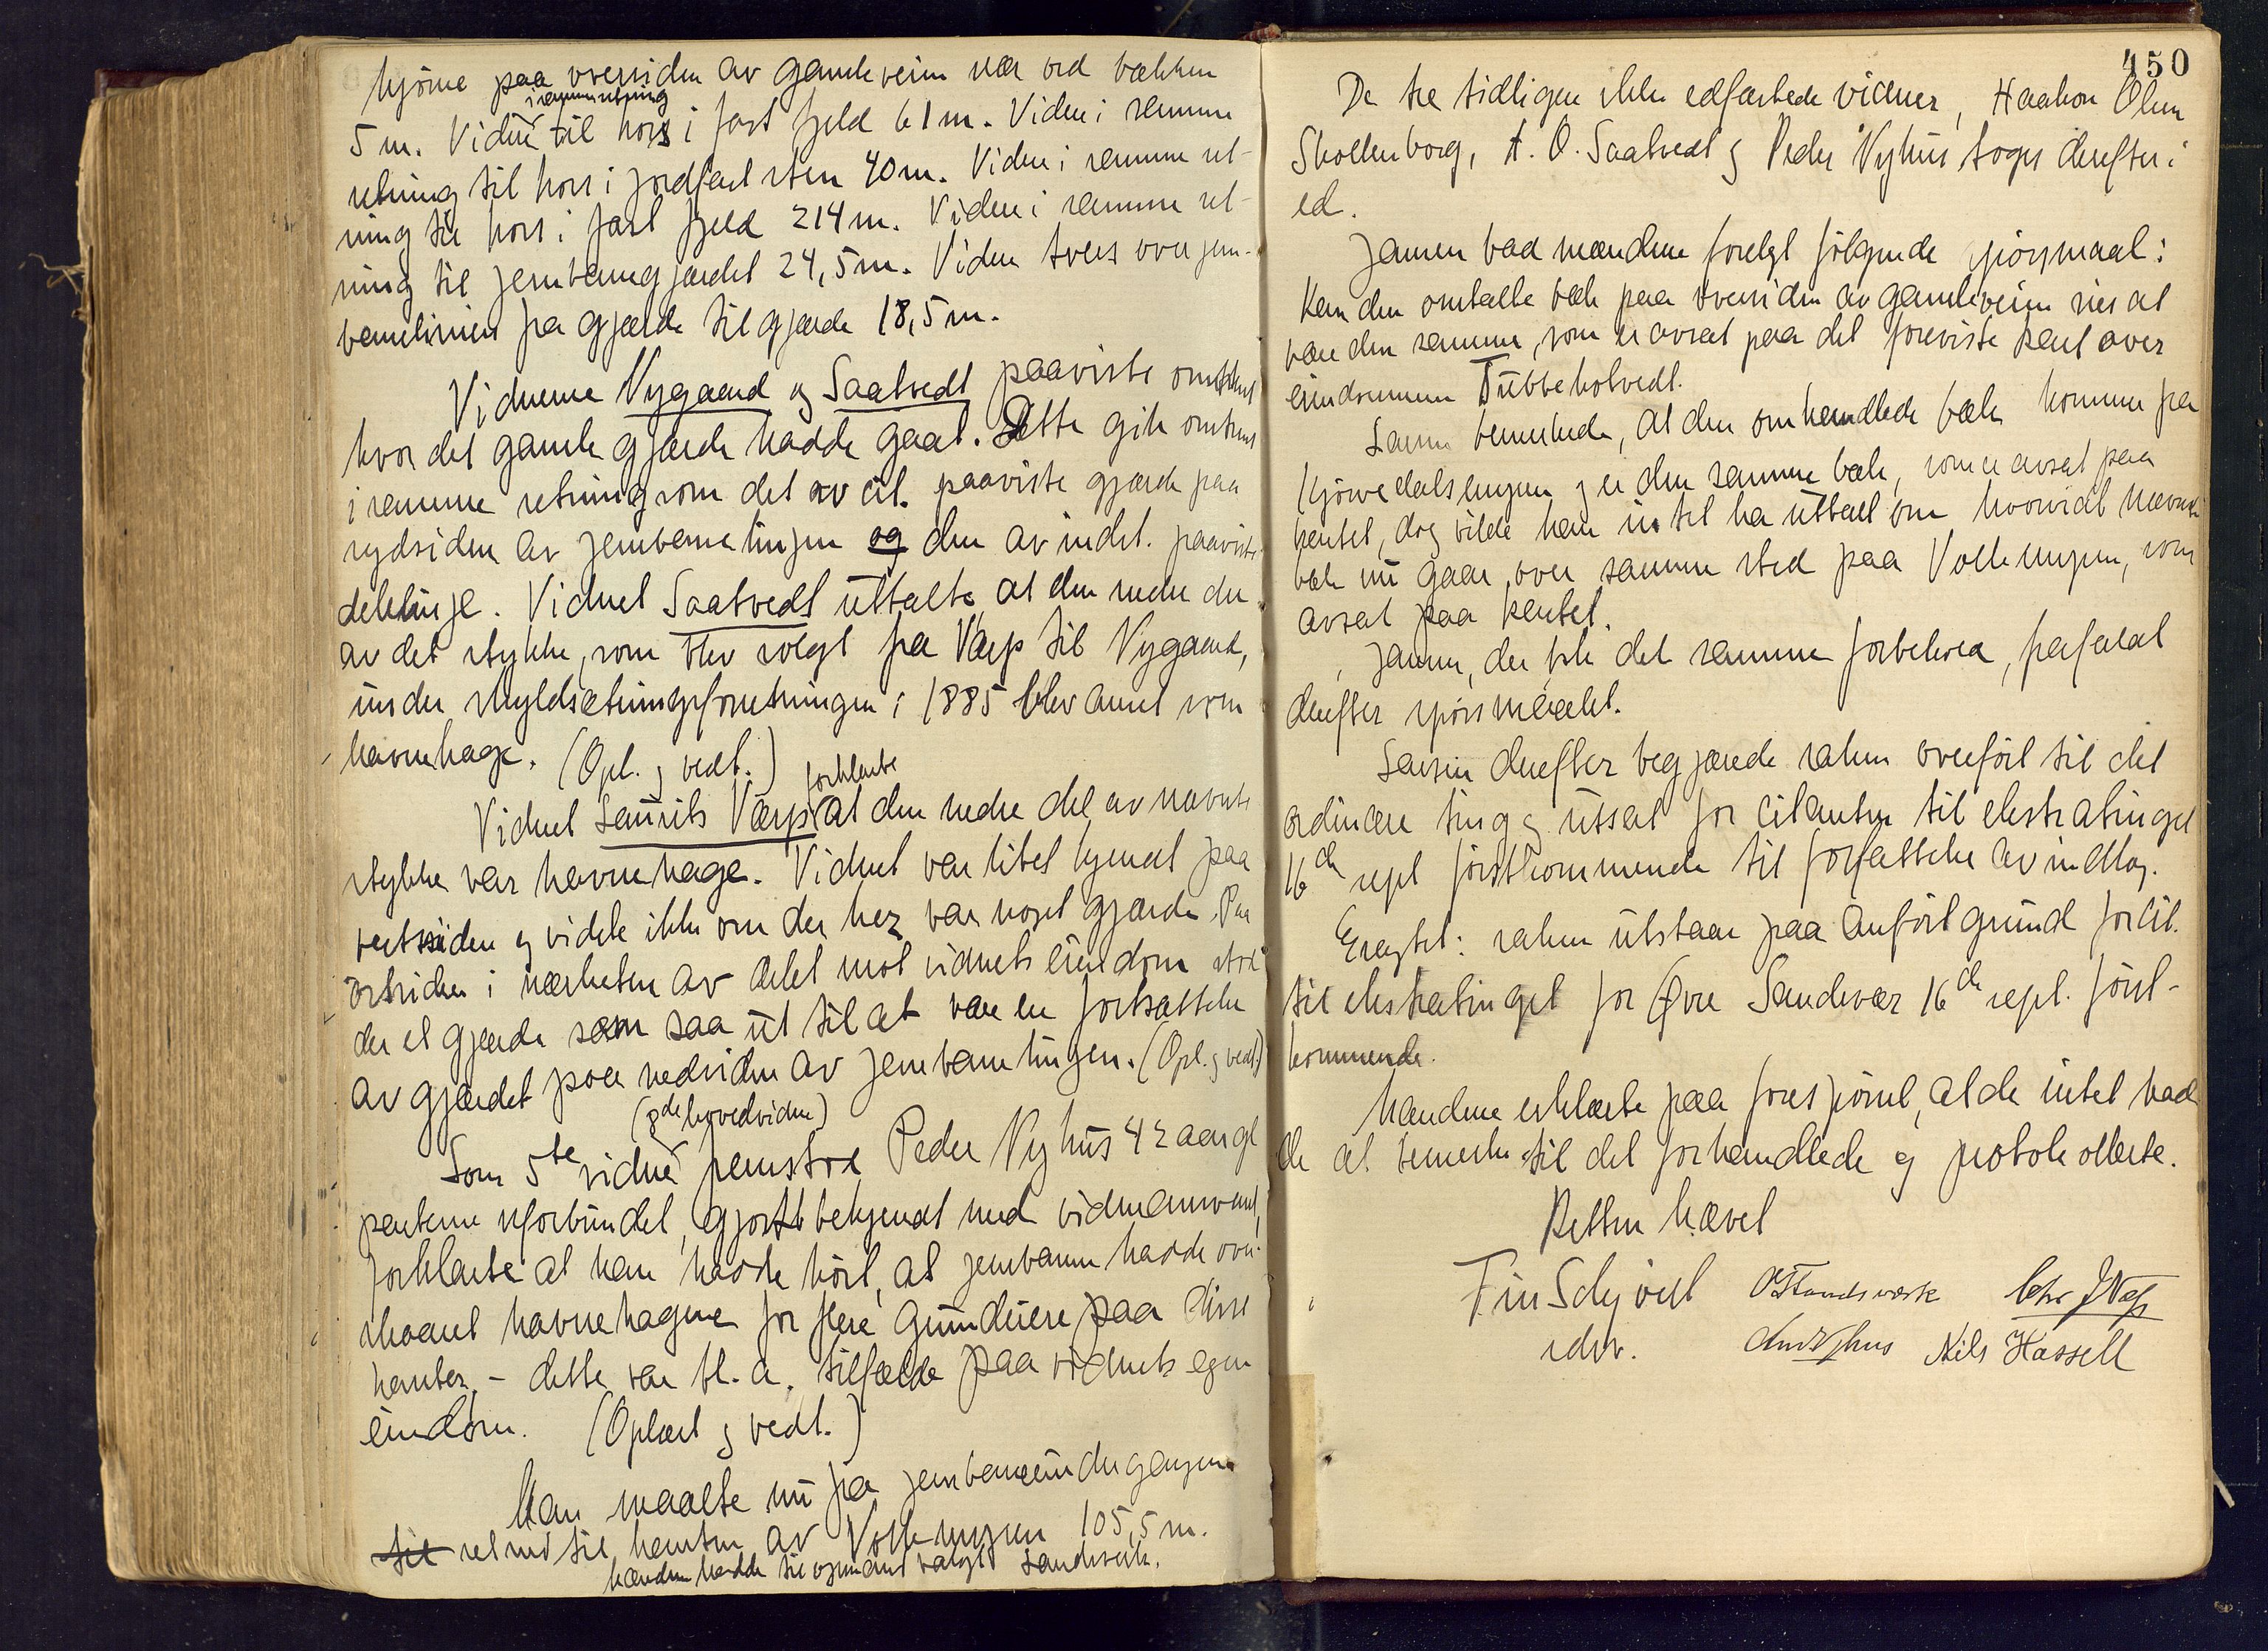 hjörne paa oversiden av gamleveien nær ved bækken
i samme retning
5 m. Videre til kors i fast fjeld 61 m. Videre i samme
retning til kors i jordfast sten 40 m. Videre i samme ret-
ning til kors i fast fjeld 214 m. Videre i samme ret-
ning til jernbanegjærdet 24,5 m. Videre tvers over jern-
banelinien fra gjærde til gjærde 18,5 m.
Vidnerne Nygaard og Saatvedt paaviste omtrent
hvor det gamle gjærde hadde gaat. Dette gik omtrent
i samme retning som det av cit. paaviste gjærde paa
sydsiden av jernbanelinjen og den av indst. paaviste
delelinje. Vidnet Saatvedt uttalte at den nedre del
av det stykke, som blev solgt fra Værp til Nygaard,
under skyldsætningsforretningen i 1885 blev anset som
havnehage. (Opl. og vedt.)
forklarte
Vidnet Laurits Værp at den nedre del av nævnte
stykke var havnehage. Vidnet var litet kjendt paa
vestsiden og vidste ikke om der her var noget gjærde. Paa
östsiden i nærheten av delet mot vidnets eiendom stod
der et gjærde som saa ut til at være en fortsættelse
av gjærdet paa nedsiden av jernbanelinjen. (Opl. og vedt.)
(8de hovedvidne)
Som 5te vidne fremstod Peder Nyhus 42 aar gl
parterne uforbundet, gjort bekjendt med vidneansvaret,
forklarte at han hadde hört, at jernbanen hadde over-
skaaret havnehagene for flere grundeiere paa disse
kanter, - dette var bl. a. tilfælde paa vidnets egen
eiendom. (Oplæst og vedt.)
Man maalte nu fra jernbaneundergangen
til ret ned til kanten av Vollengen 105,5 m.
Mændene hadde til ogmand valgt Landsverk.
450
De tre tidligere ikke edfæstede vidner, Haakon Olsen
Skollenborg, A. O. Saatvedt og Peder Nyhus toges derefter i
ed.
Jansen bad mændene forelagt fölgende spörsmaal:
Kan den omtalte bæk paa oversiden av gamleveien sies at
være den samme, som er avsat paa det foreviste kart over
eiendommen Tubbeholvedt.
Larsen bemerkede, at den omhandlede bæk kommer fra
Kjörvedalsengen og er den samme bæk, som er avsat paa
kartet, dog vilde han intet ha uttalt om hvorvidt nævnte
bæk nu gaar over samme sted paa Vollengen, som
avsat paa kartet.
Jansen, der tok det samme forbehold, frafaldt
derefter spörsmaalet.
Larsen derefter begjærede saken overfört til det
ordinære ting og utsat for citanten til ekstratinget
16de sept förstkommende til forfattelse av indlæg.
Eragtet: saken utstaar paa anfört grund for cit.
til ekstratinget for Øvre Sandsvær 16de sept. först-
kommende.
Mændene erklærte paa forespörsel, at de intet had
de at bemerke til det forhandlede og protokollerte.
Retten hævet
Fin Schjöll O. Landsværk Chr J Næss
sdsv. And Nyhus Nils Hassell